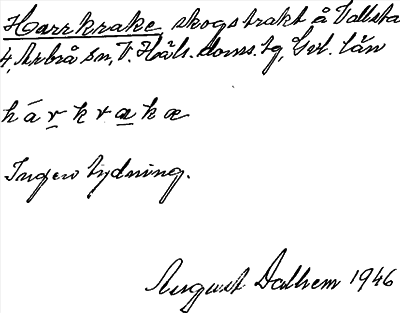 Harrkrake, skogstrakt å Vallsta
4, Arbrå sn, V. Häls. doms. tg, Gvl. län
hárkraka
Ingen tydning.
August Dalhem 1946